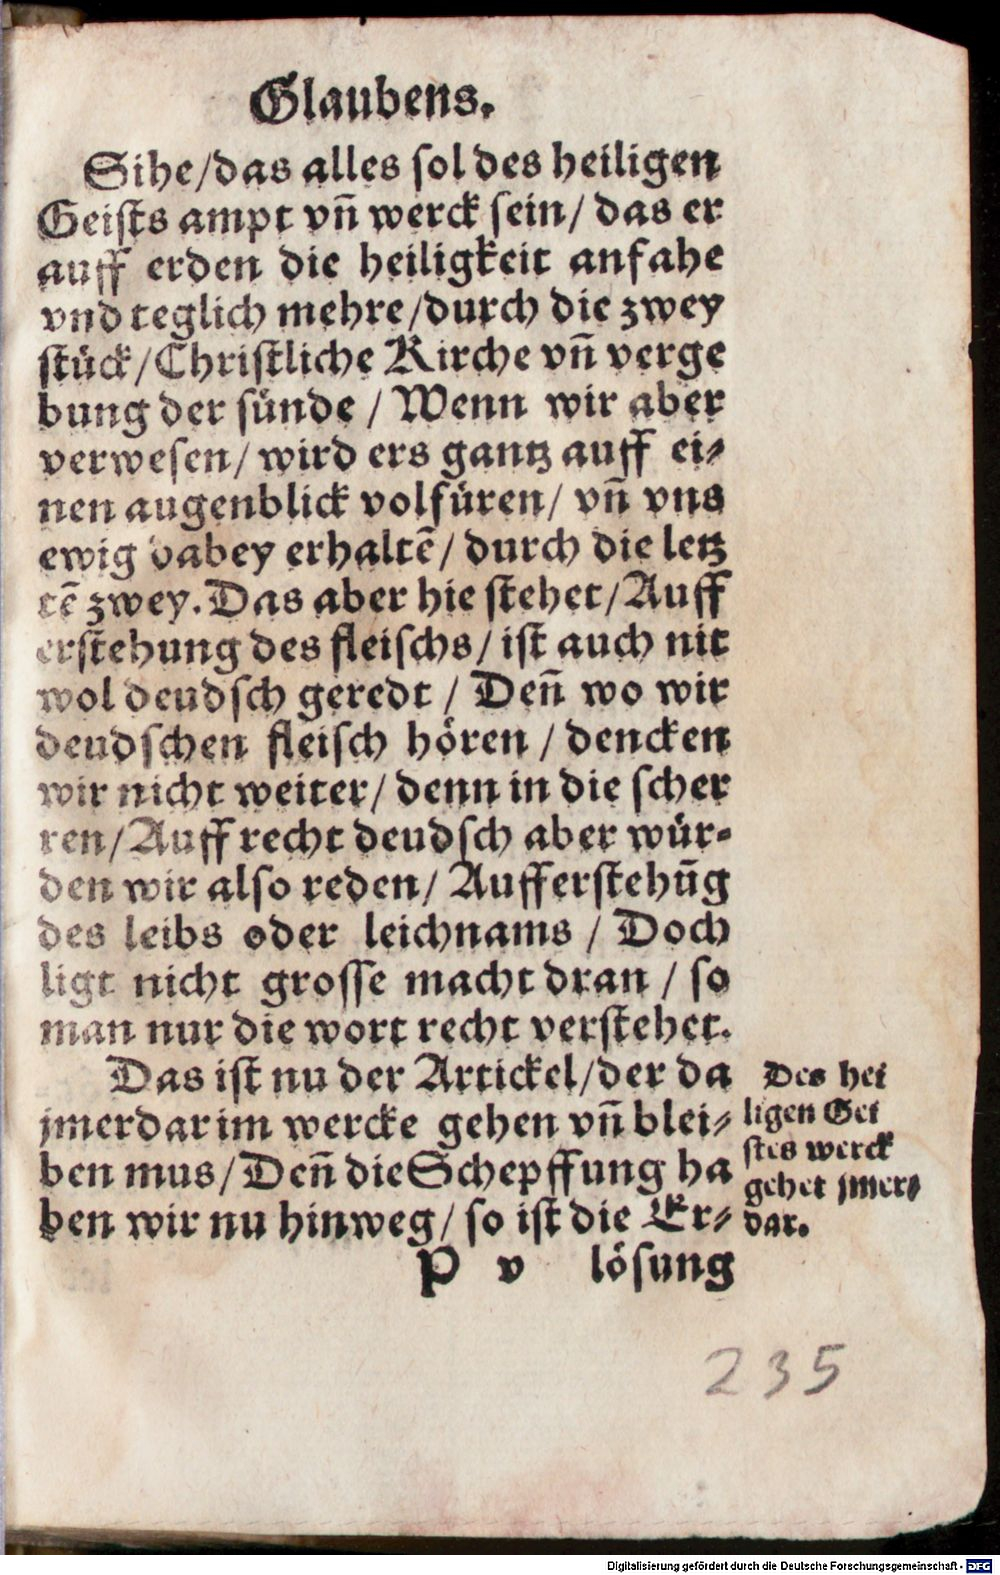 Glaubens.
Sihe/das alles sol des heiligen
Geists ampt vñ werck sein/ das er
auff erden die heiligkeit anfahe
vnd teglich mehre/durch die zwey
stück/Christliche Kirche vñ verge
bung der sünde / Wenn wir aber
verwesen/ wird ers gantz auff ei⸗
nen augenblick volfüren/ vñ vns
ewig dabey erhaltē/ durch die letz
tē zwey. Das aber hie stehet/Auff
erstehung des fleischs/ ist auch nit
wol deudsch geredt / Deñ wo wir
deudschen fleisch hören / dencken
wir nicht weiter/ denn in die scher
ren/Auff recht deudsch aber wür⸗
den wir also reden/ Aufferstehūg
des leibs oder leichnams / Doch
ligt nicht grosse macht dran / so
man nur die wort recht verstehet.
Das ist nu der Artickel/der da
jmerdar im wercke gehen vñ blei⸗
ben mus/Deñ die Schepffung ha
ben wir nu hinweg/ so ist die Er⸗
Des hei
ligen Gei
stes werck
gehet jmer⸗
dar.
P v lösung
235
Digitalisierung gefördert durch die Deutsche Forschungsgemeinschaft - DFG